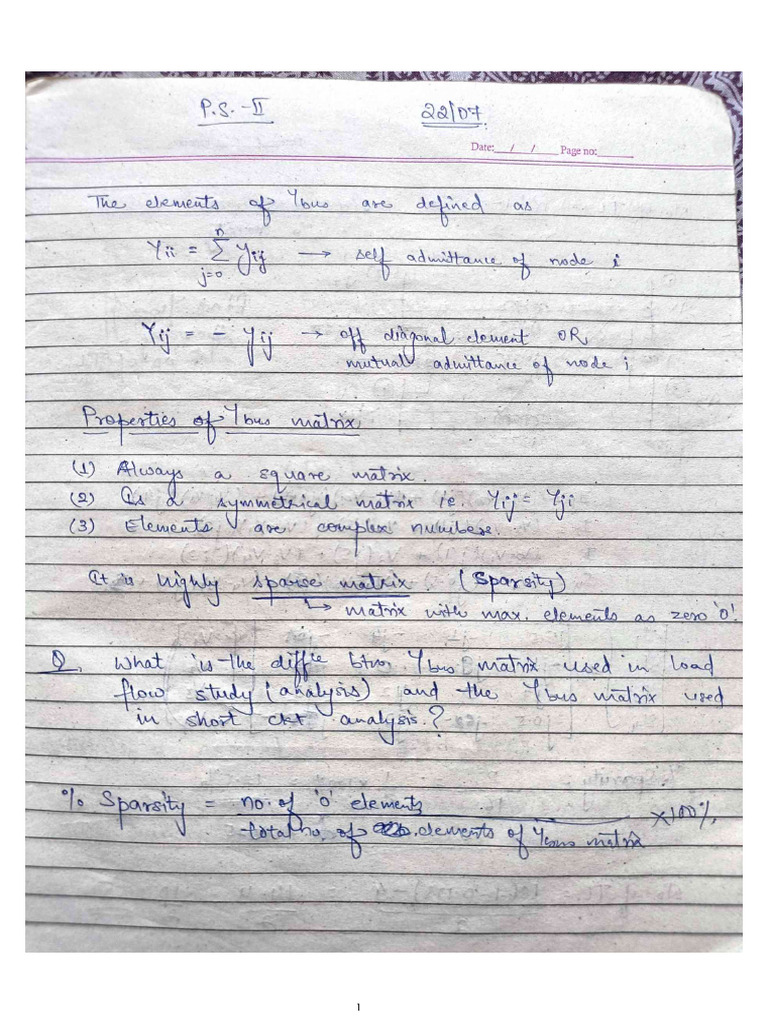 P.S.-II 22/07
Date: / / Page no:
The elements of Ybus are defined as
Yii = n∑j=0 yij → self admittance of node i
Yij = - yij → off diagonal element OR
mutual admittance of node i
Properties of Ybus matrix
(1) Always a square matrix.
(2) Is a symmetrical matrix ie. Yij = Yji
(3) Elements are complex numbers.
It is highly sparse matrix. (Sparsity)
↳ matrix with max. elements as zero '0'.
Q. What is the diffce btwn Ybus matrix used in load
flow study (analysis) and the Ybus matrix used
in short ckt analysis?
% Sparsity = no. of '0' elements
total no. of elements of Ybus matrix ×100%.
1